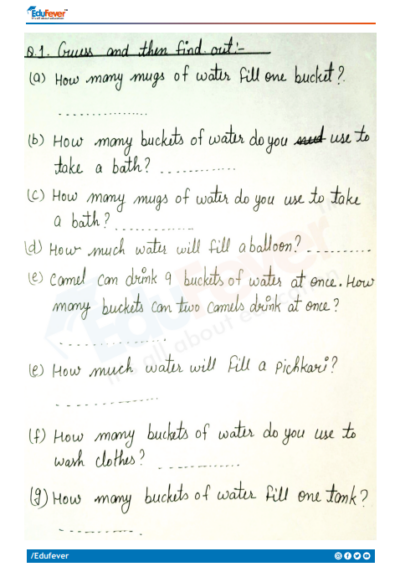 EduFever
Q.1. Guess and then find out:-
(a) How many mugs of water fill one bucket?
................
(b) How many buckets of water do you use to
take a bath? .............
(c) How many mugs of water do you use to take
a bath? .............
(d) How much water will fill a balloon? ..........
(e) Camel can drink 9 buckets of water at once. How
many buckets can two camels drink at once?
................
(e) How much water will fill a pichkari?
................
(f) How many buckets of water do you use to
wash clothes? .............
(g) How many buckets of water fill one tank?
.............
/Edufever